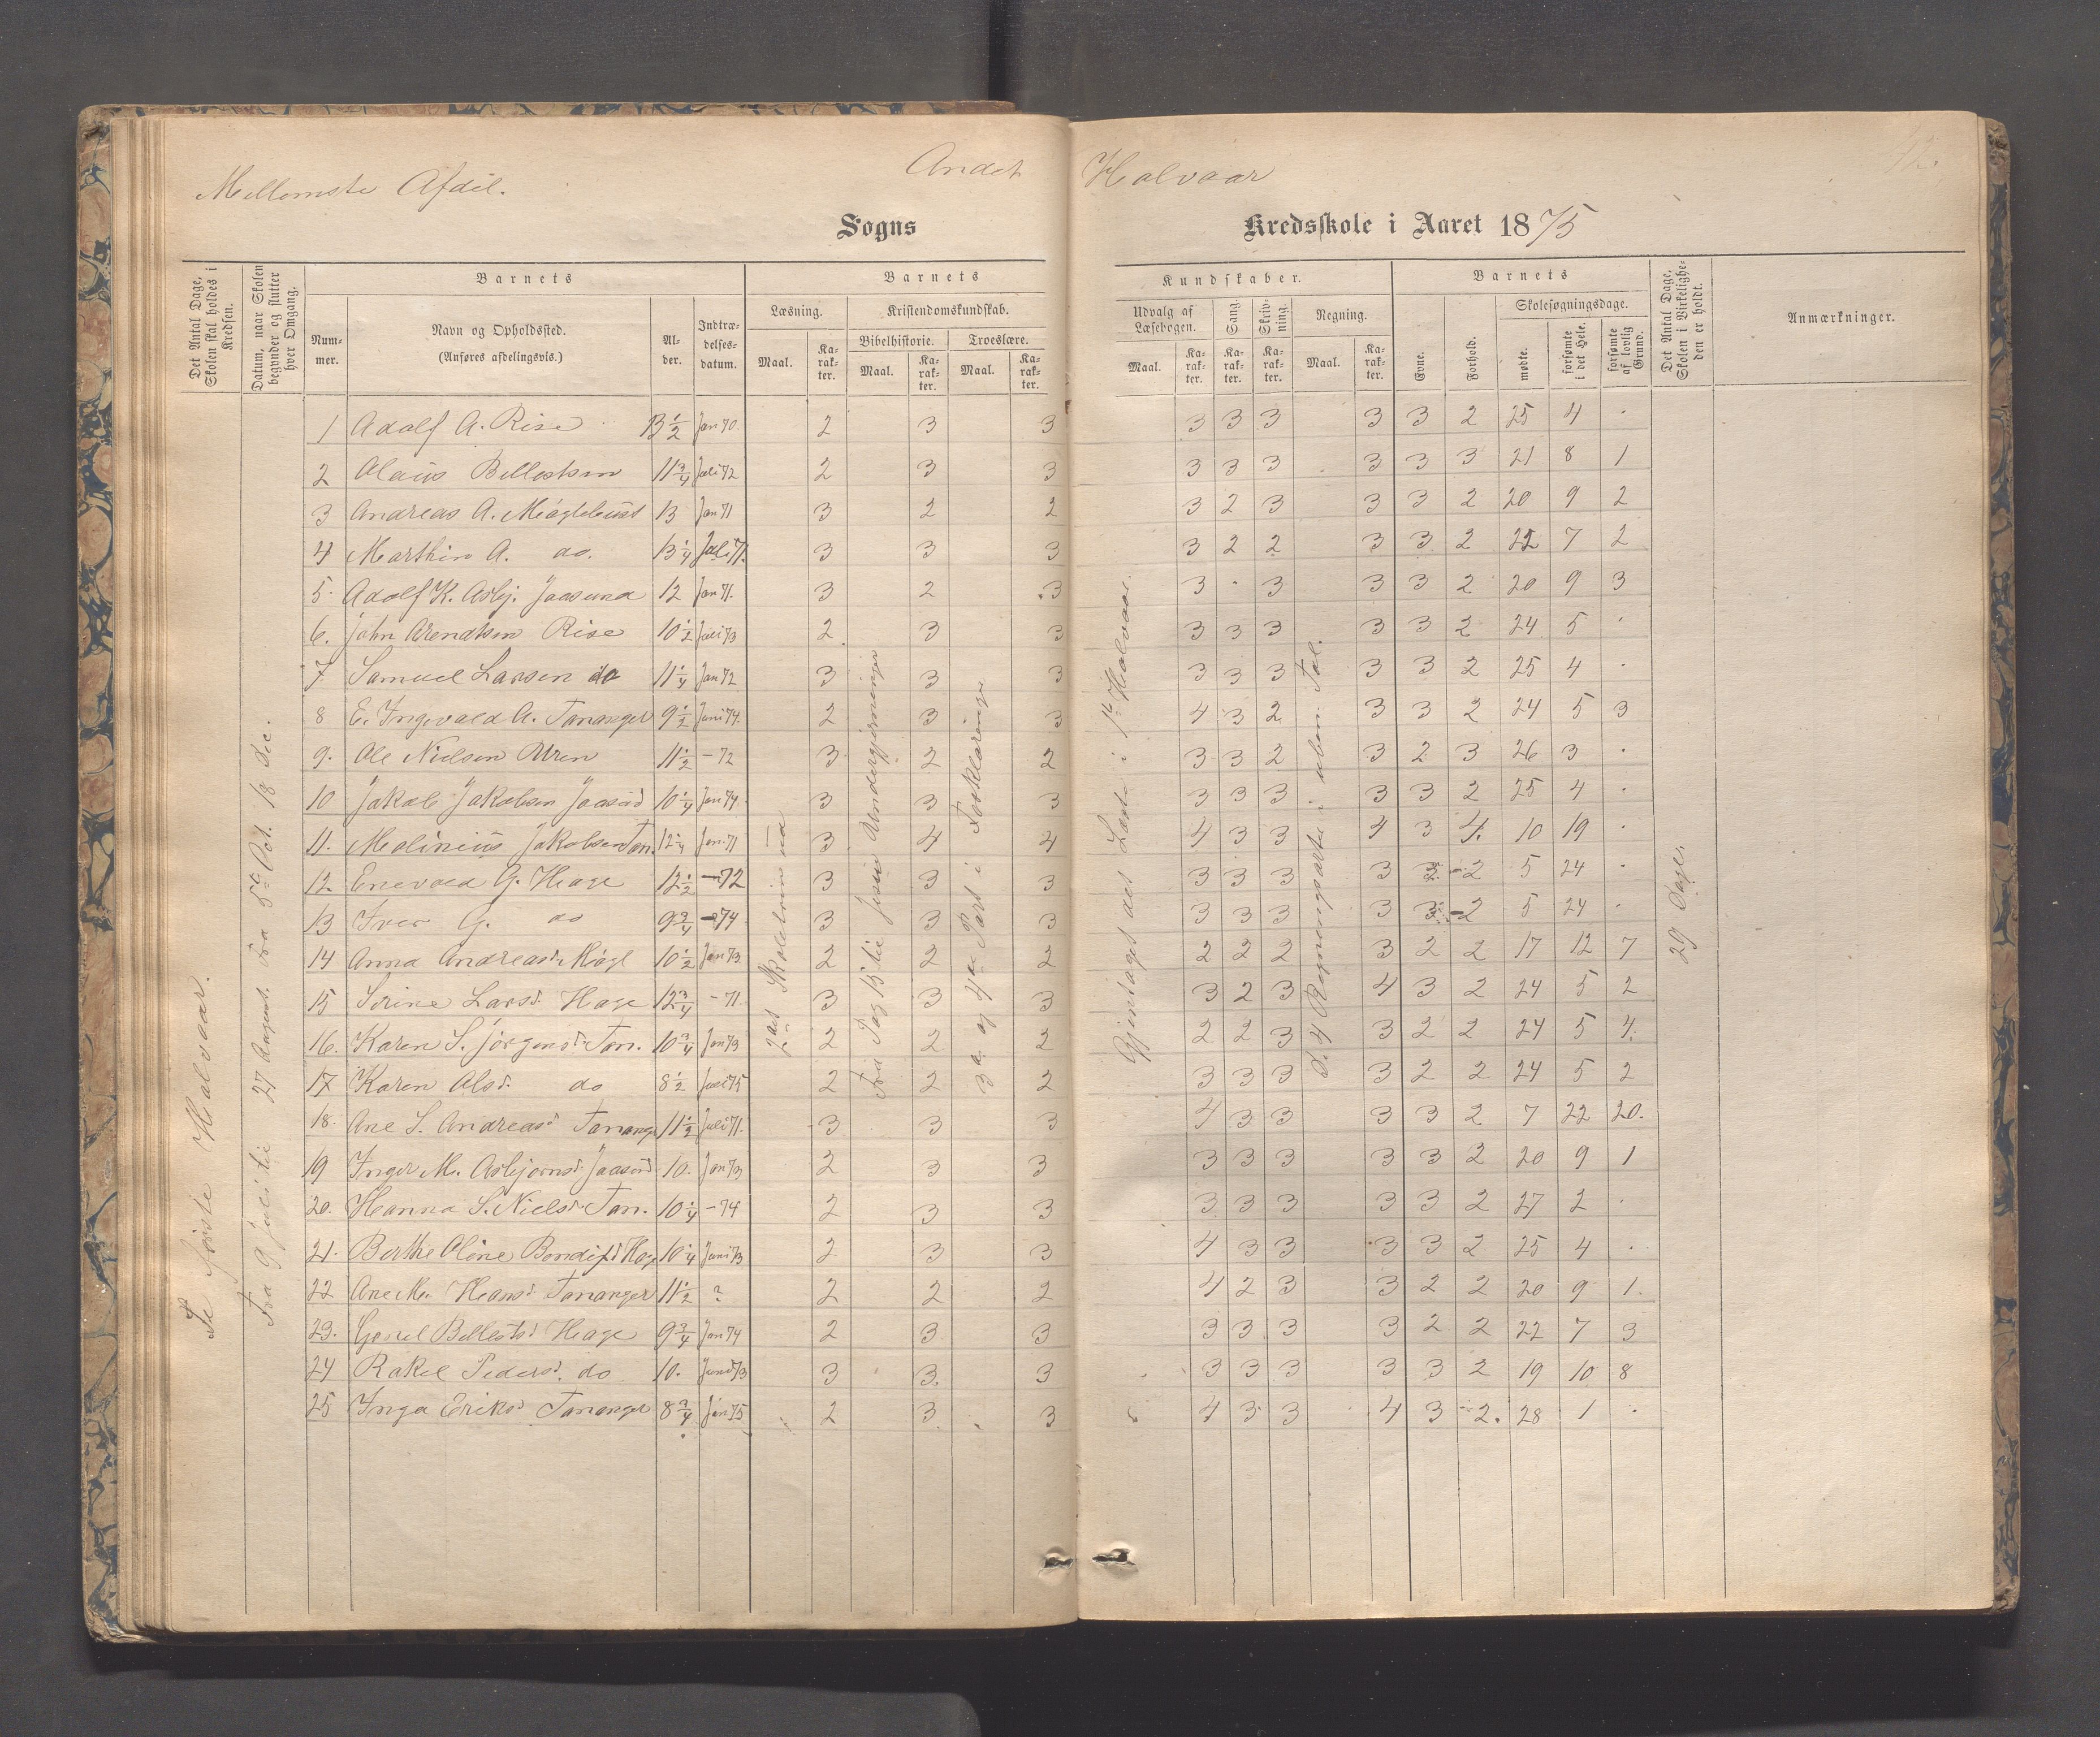 Mellemste Afdel. Andet Halvaar 12.
Sogns Kredsskole i Aaret 1875
Det Antal Dage, Skolen skal holdes i Kredsen.
Datum, naar Skolen begynder og slutter hver Omgang.
Barnets
Nummer.
Navn og Opholdssted.
(Anføres afdelingsvis.)
Alder.
Indtrædelsesdatum.
Barnets Kundskaber.
Læsning. Maal. Karakter.
Kristendomskundskab.
Bibelhistorie. Maal. Karakter.
Troeslære. Maal. Karakter.
Udvalg af Læsebogen. Maal. Karakter.
Sang. Karakter.
Skrivning. Karakter.
Regning. Maal. Karakter.
Barnets
Evne.
Forhold.
Skolesøgningsdage.
mødte.
forsømte i det Hele.
forsømte af lovlig Grund.
Det Antal Dage, Skolen i Virkeligheden er holdt.
Anmærkninger.
Se første Halvaar.
Fra 9 Juli til 27 August. Fra 5te Oct. 18 Dec.
2det Skoletrin ud
Fra Pag 15 til Jesu Undergjerninger
3die og 4de Part i Forklaringen
Gjentaget det Læste i 1ste Halvaar.
D. 4 Regningsarter i uben. Tal.
29 Dage.
1 Adolf A. Rise 13 1/2 Jan 70. 2 3 3 3 3 3 3 3 2 25 4 .
2 Olaus Bellestsen 11 3/4 Juli 72 2 3 3 3 3 3 3 3 3 21 8 1
3 Andreas A. Meaglebust 13 Jan 71 3 2 2 3 2 3 3 3 2 20 9 2
4 Marthin A. do. 13 1/4 Juli 71. 3 3 3 3 2 2 3 3 2 22 7 2
5. Adolf K. Asbj. Jaasund 12 Jan 71. 3 2 3 3 . 3 3 3 2 20 9 3
6. John Arendtsen Rise 10 1/2 Juli 73 2 3 3 3 3 3 3 3 2 24 5 .
7 Samuel Larsen do 11 1/4 Jan 72 3 3 3 3 3 3 3 3 2 25 4 .
8 E. Ingevald A. Tananger 9 1/2 Juni 74. 2 3 3 4 3 2 3 3 2 24 5 3
9. Ole Nielsen Uren 11 1/2 - 72 3 2 2 3 3 2 3 2 3 26 3 .
10 Jakob Jakobsen Jaasud 10 1/4 Jan 74. 3 3 3 3 3 3 3 3 2 25 4 .
11. Malinius Jakobsen Tan. 12 1/4 Jan. 71 3 4 4 4 3 3 4 3 4. 10 19 .
12 Enevald G. Hage 12 1/2 - 72 3 3 3 3 3 3 3 3 2 5 24 .
13 Iver G. do 9 3/4 - 74 3 3 3 3 3 3 3 3 2 5 24 .
14 Anna Andreasd. Mågl 10 1/2 Jan 73 2 2 2 2 2 2 3 2 2 17 12 7
15 Serine Larsd. Hage 12 3/4 - 71 3 3 3 3 2 3 4 3 2 24 5 2
16. Karen S. Jørgensd. Tan. 10 3/4 Jan 73 2 2 2 2 2 3 3 2 2 24 5 4.
17 Karen Olsd. do 8 1/2 Juli 75 2 2 2 3 3 3 3 2 2 24 5 2
18. Ane S. Andreasd. Tanang. 11 1/2 Juli 71. 3 3 3 4 3 3 3 3 2 7 22 20.
19 Inger M. Asbjørnsd. Jaasund 10. Jan 73 2 3 3 3 3 3 3 3 2 20 9 1
20. Hanna S. Nielsd. Tan. 10 1/4 - 74 2 3 3 3 3 3 3 3 2 27 2 .
21. Berthe Oline Bendixd. Hage 10 1/4 Juni 73 2 3 3 4 3 3 3 3 2 25 4 .
22 Ane M. Hansd. Tananger 11 1/2 ? 2 2 2 4 2 3 3 2 2 20 9 1.
23. Gurel Bellestsd. Hage 9 3/4 Jan 74 2 3 3 3 3 3 3 2 2 22 7 3
24 Rakel Pedersd. do 10. Juni 73 3 3. 3 3 3 3 3 3 2 19 10 8
25 Inga Eriksd. Tananger 8 3/4 Jan 75 2 3. 3 4 3 3 4 3 2. 28 1 .